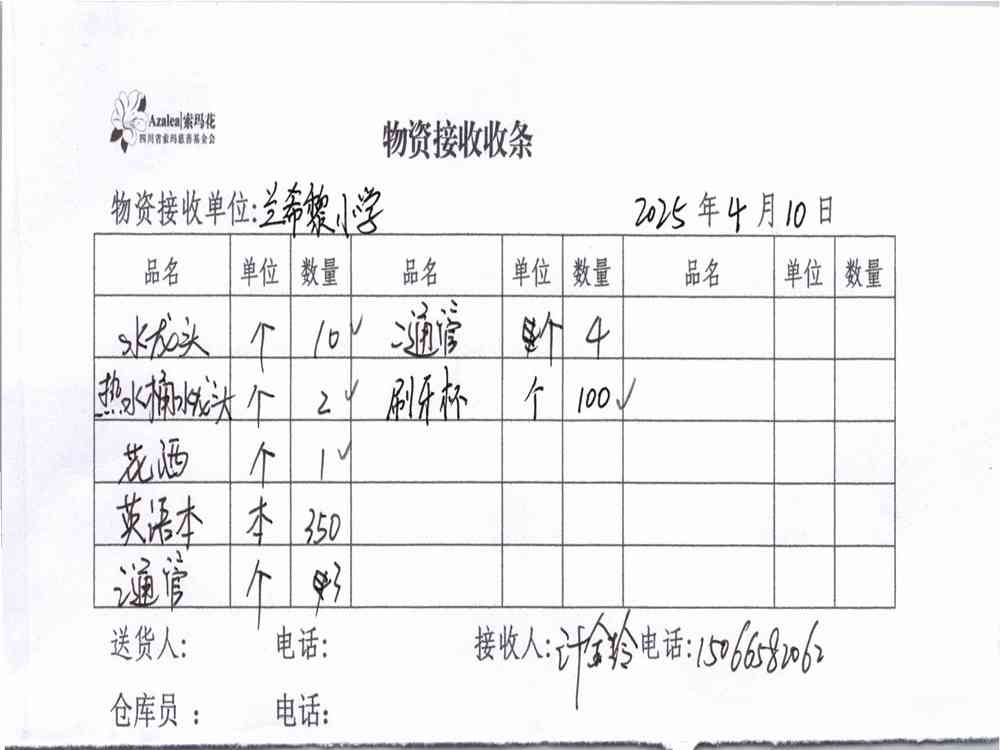 Azalea|索玛花
四川省索玛慈善基金会
物资接收收条
物资接收单位:兰希黎小学 2025年4月10日
品名 单位 数量 品名 单位 数量 品名 单位 数量
水龙头 个 10✓ 二通管 个 4
热水桶水龙头 个 2✓ 刷牙杯 个 100✓
花洒 个 1✓
英语本 本 350
三通管 个 3
送货人: 电话: 接收人:计金玲 电话:15066582062
仓库员: 电话: